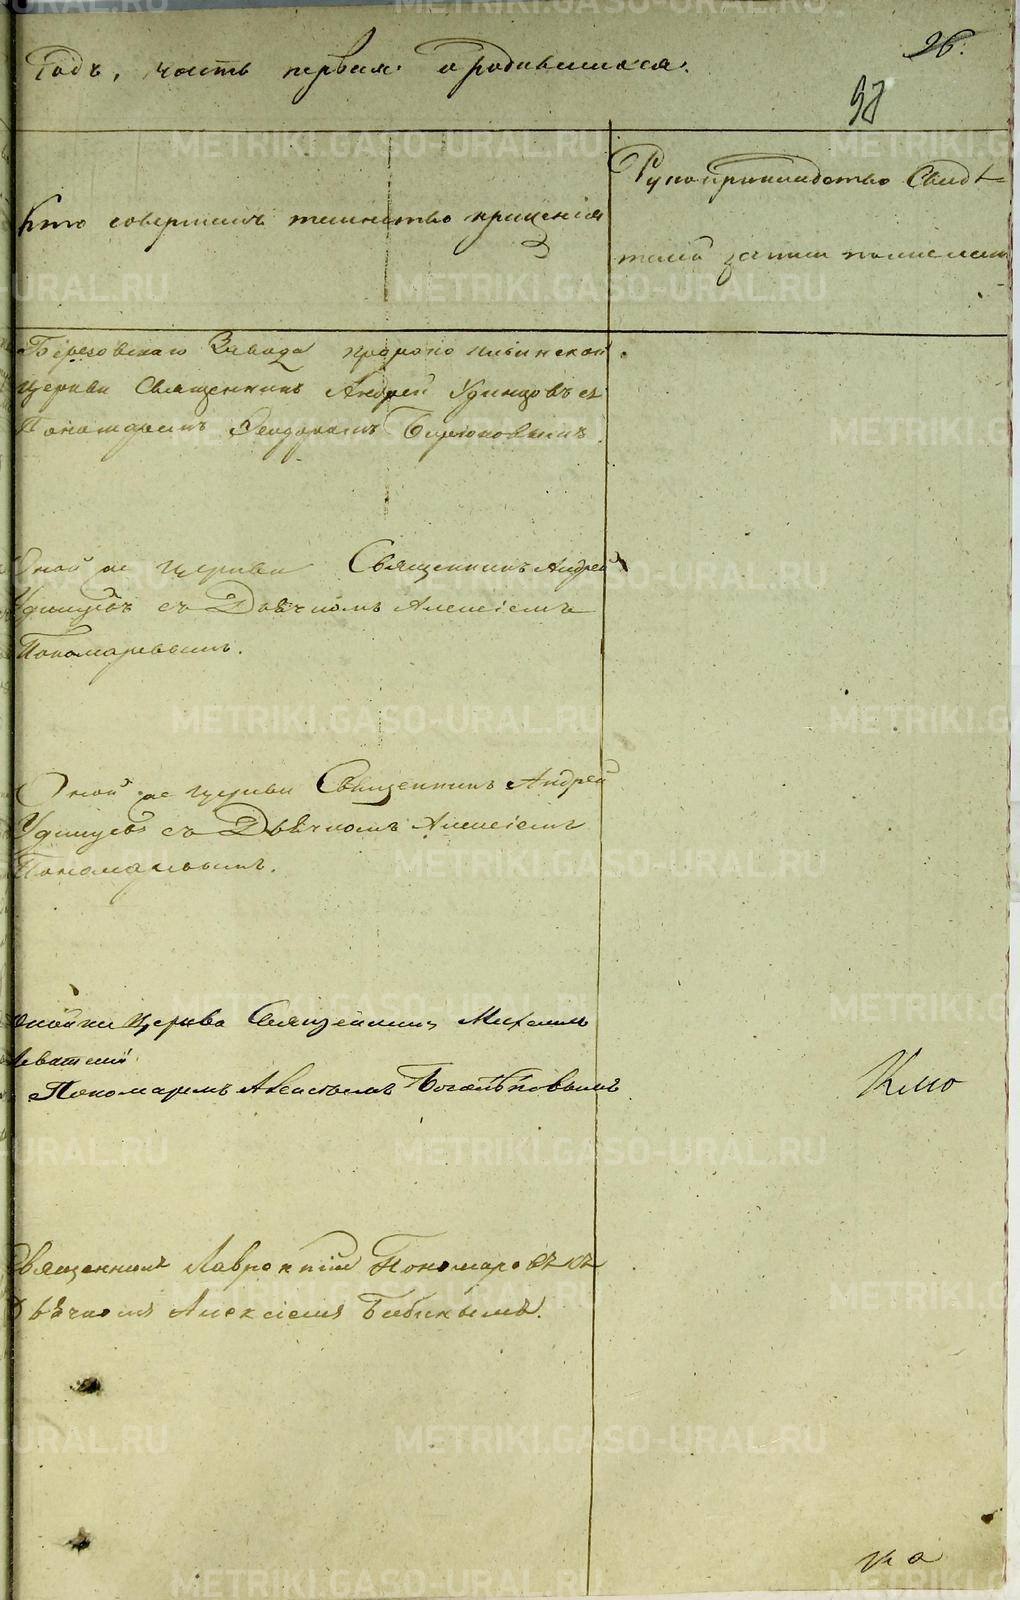 26.
Годъ, часть первая о родившихся.
98
Кто совершалъ таинство крещенія
Рукоприкладство Свидѣ-
телей записи по
Березовскаго Завода пророко Ильинской
церкви Священникъ Андрей Удинцовъ съ
Пономаремъ Феодоромъ Бирюковымъ
Оной же церкви Священникъ Андрей
Удинцовъ съ Дьячкомъ Алексіемъ
Пономаревымъ.
Оной же церкви Священникъ Андрей
Удинцовъ съ Дьячкомъ Алексіемъ
Пономаревымъ.
Оной же Церкви Священникъ Михаилъ
Пономаремъ
Священникъ Лаврентій Пономаревъ съ
Дьячкомъ Алексіемъ Бибиковымъ.
METRIKI.GASO-URAL.RU